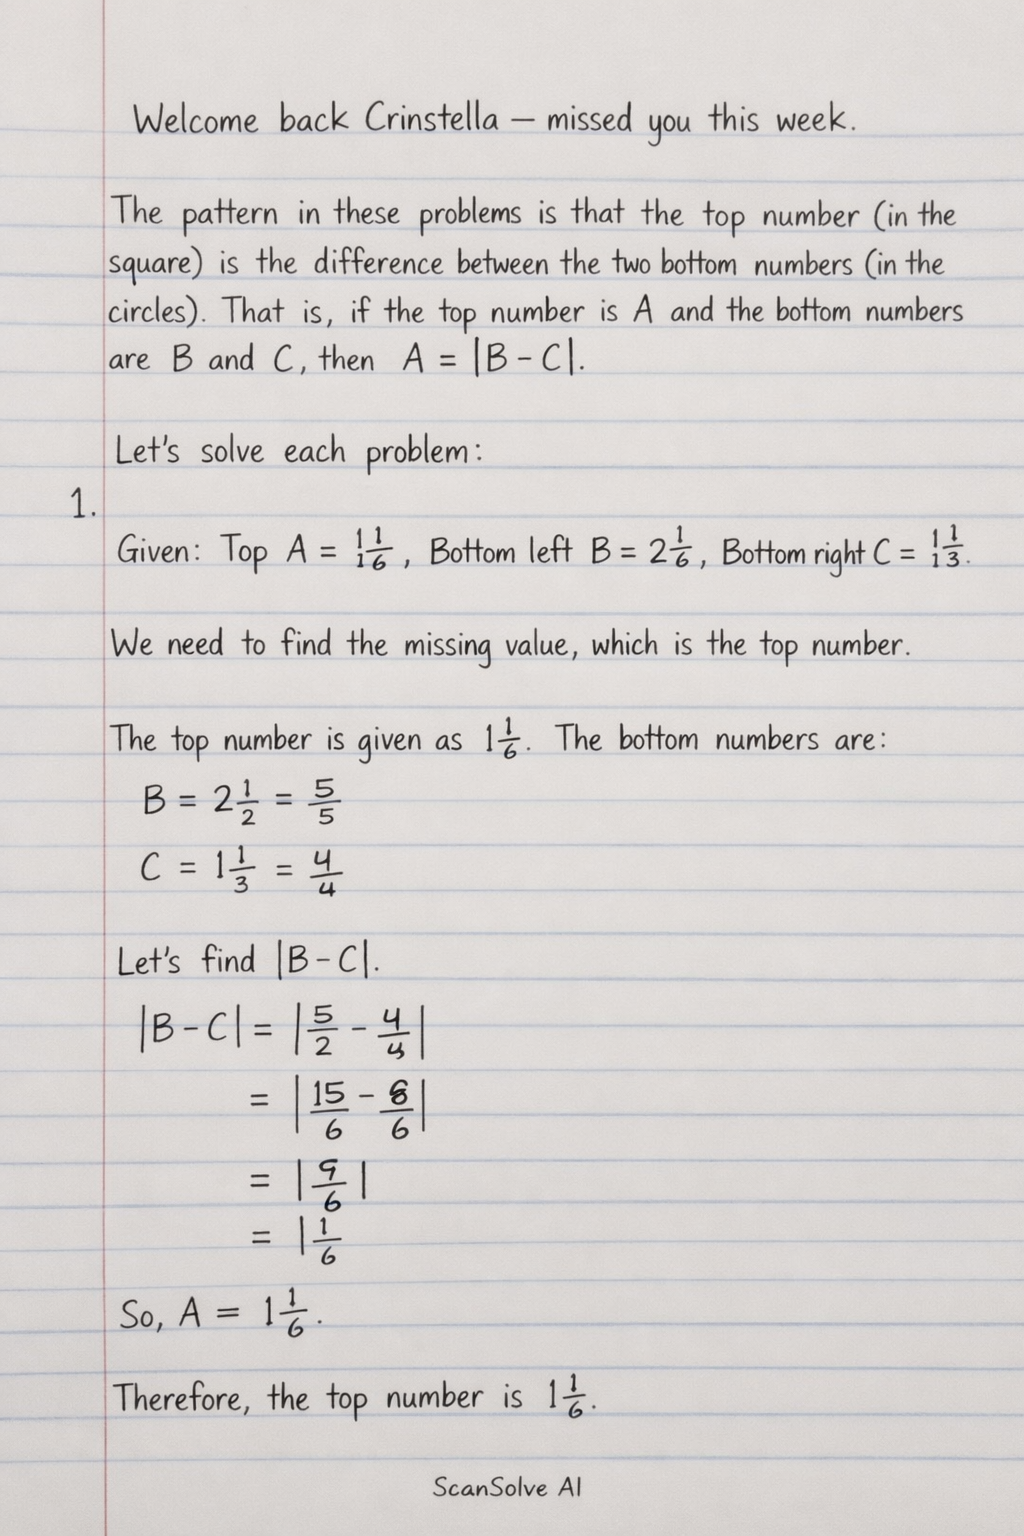 Welcome back Crinstella — missed you this week.
The pattern in these problems is that the top number (in the
square) is the difference between the two bottom numbers (in the
circles). That is, if the top number is A and the bottom numbers
are B and C, then A = |B - C|.
Let's solve each problem:
1.
Given: Top A = 1/1 1/6, Bottom left B = 2 1/6, Bottom right C = 1/1 1/3.
We need to find the missing value, which is the top number.
The top number is given as 1 1/6. The bottom numbers are:
B = 2 1/2 = 5/5
C = 1 1/3 = 4/4
Let's find |B - C|.
|B - C| = |5/2 - 4/4|
= |15/6 - 8/6|
= |9/6|
= |1/6
So, A = 1 1/6.
Therefore, the top number is 1 1/6.
ScanSolve AI